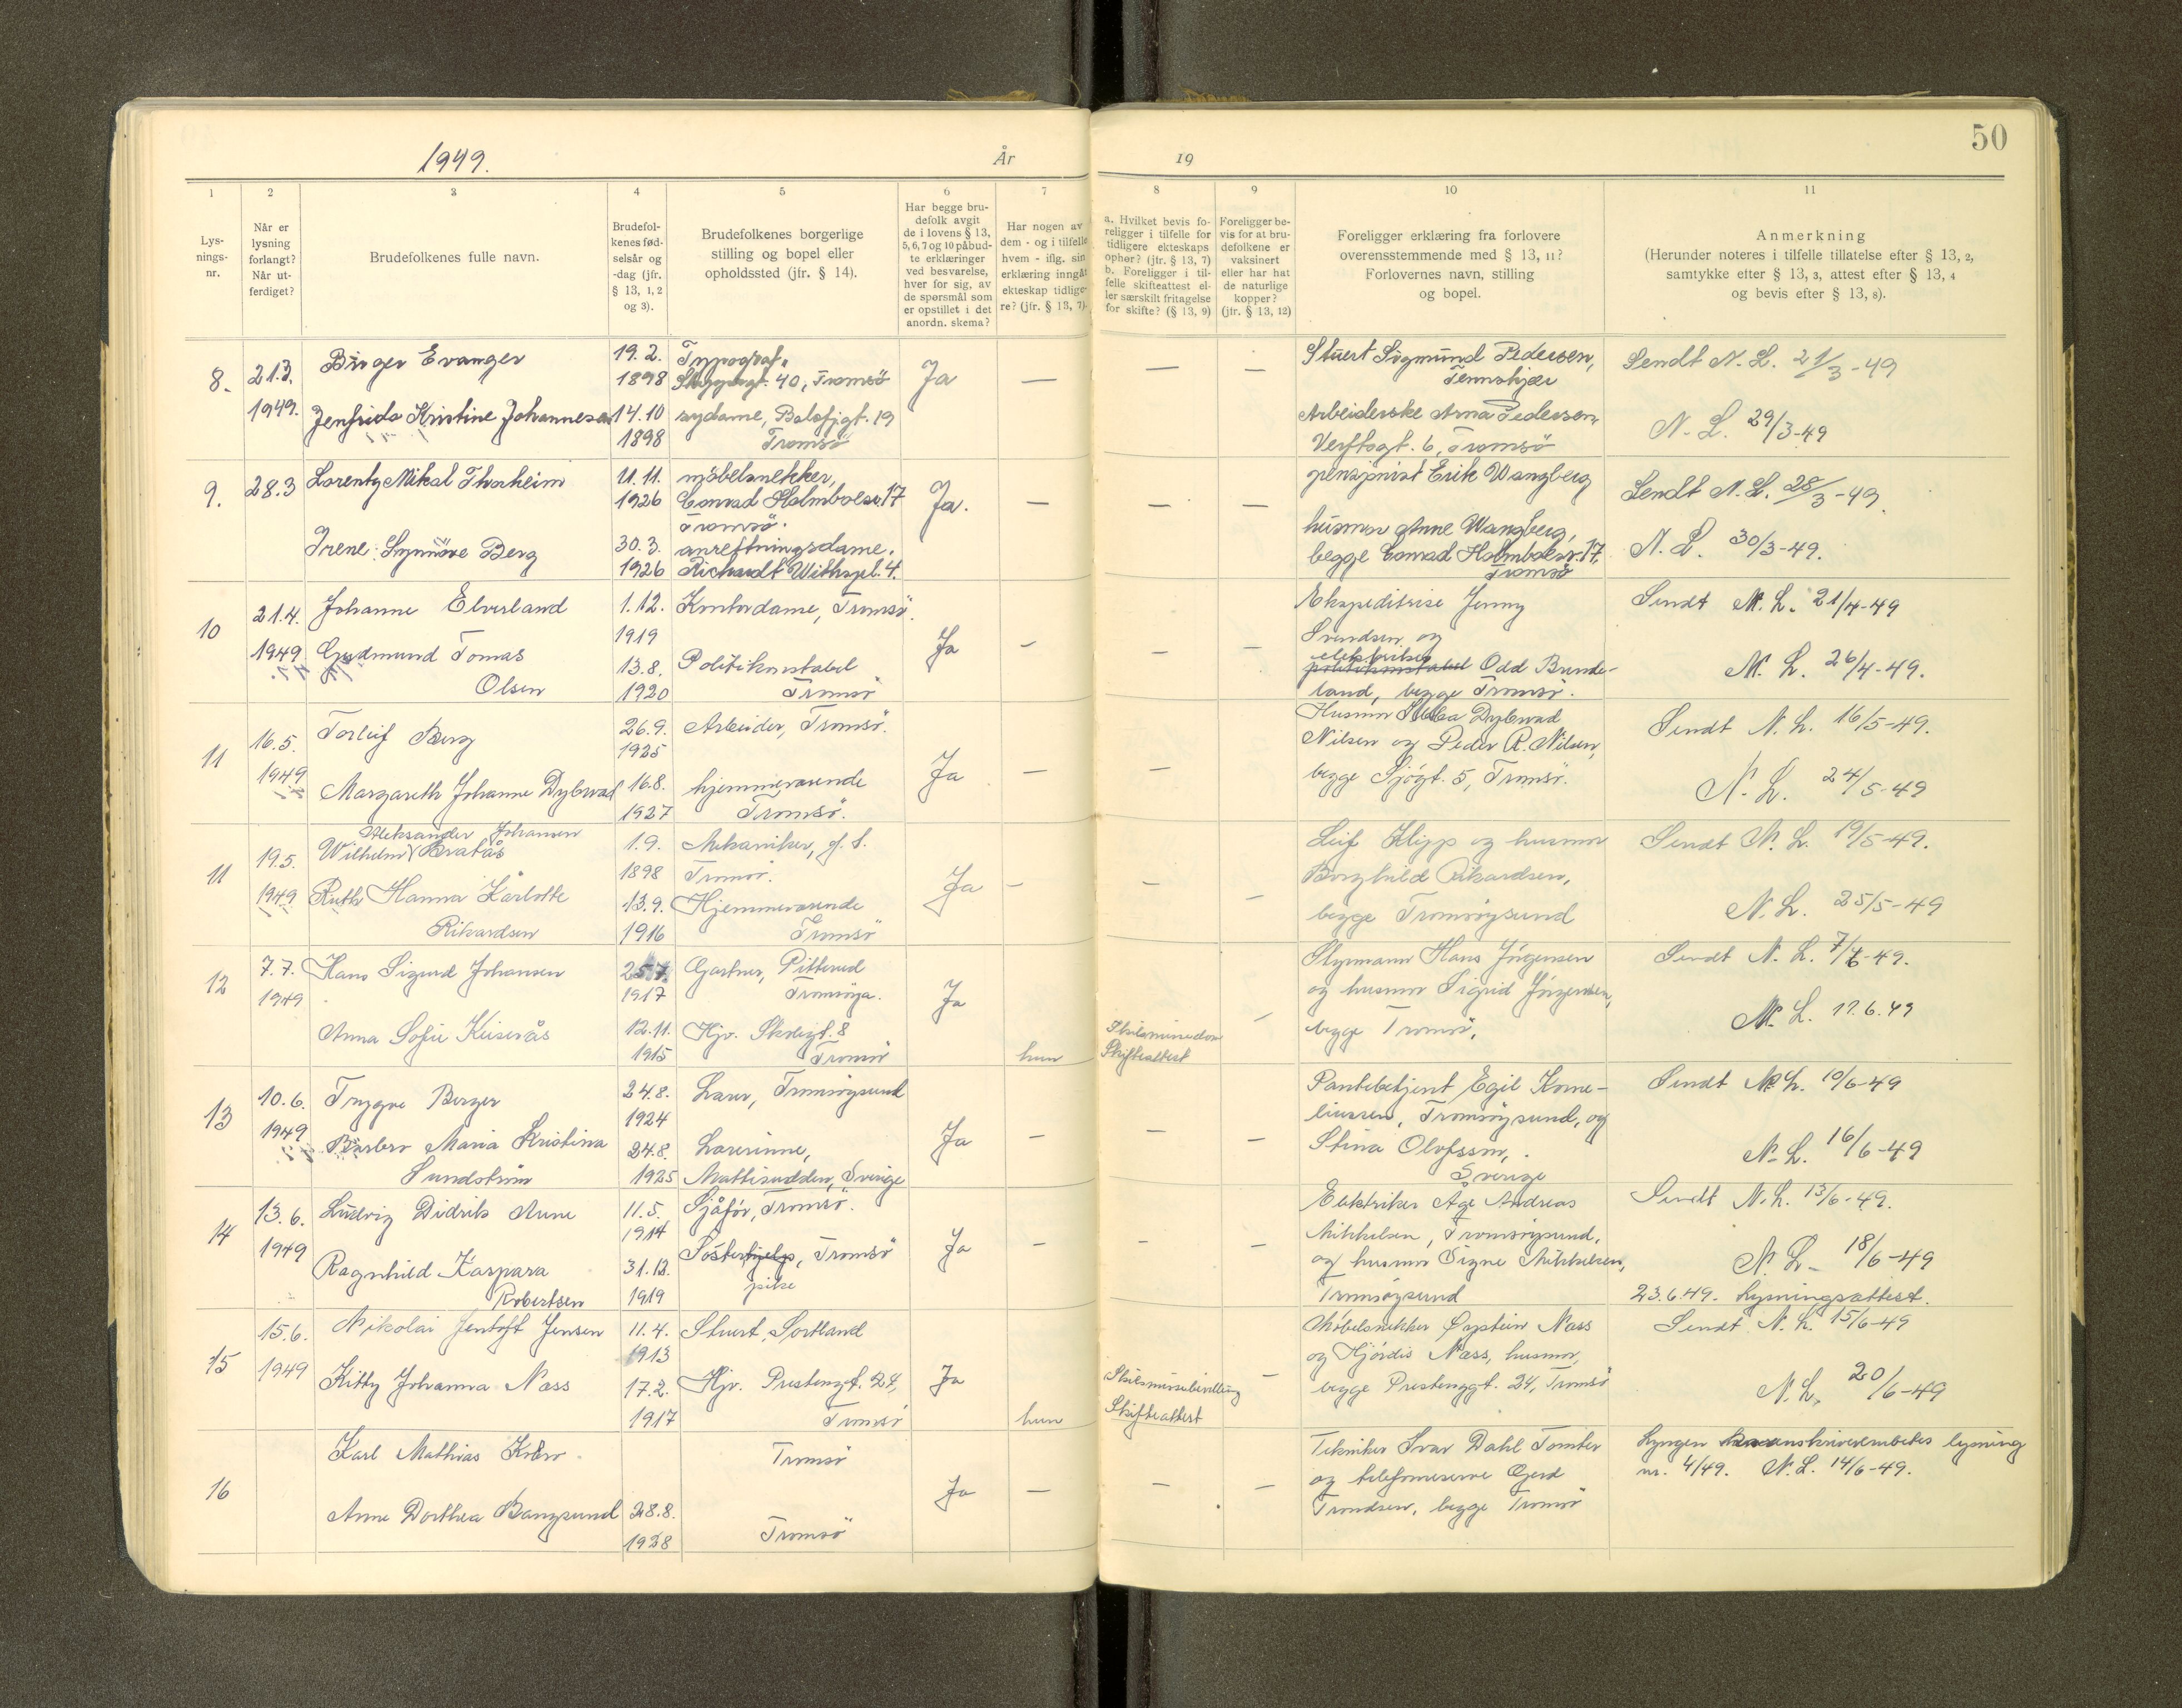 50
1949.
År
19
1
2
3
4
5
6
7
8
9
10
11
Lys-
nings-
nr.
Når er
lysning
forlangt?
Når ut-
ferdiget?
Brudefolkenes fulle navn.
Brudefol-
kenes fød-
selsår og
-dag (jfr.
§ 13, 1, 2
og 3).
Brudefolkenes borgerlige
stilling og bopel eller
opholdssted (jfr. § 14).
Har begge bru-
defolk avgit
de i lovens § 13,
5, 6, 7 og 10 påbud-
te erklæringer
ved besvarelse,
hver for sig, av
de spørsmål som
er opstillet i det
anordn. skema?
Har nogen av
dem - og i tilfelle
hvem - iflg. sin
erklæring inngåt
ekteskap tidlige-
re? (jfr. § 13, 7).
a. Hvilket bevis fo-
religger i tilfelle for
tidligere ekteskaps
ophør? (jfr. § 13, 7)
b. Foreligger i til-
felle skifteattest el-
ler særskilt fritagelse
for skifte? (§ 13, 9)
Foreligger be-
vis for at bru-
defolkene er
vaksinert
eller har hat
de naturlige
kopper?
(jfr. § 13, 12)
Foreligger erklæring fra forlovere
overensstemmende med § 13, 11?
Forlovernes navn, stilling
og bopel.
Anmerkning
(Herunder noteres i tilfelle tillatelse efter § 13, 2,
samtykke efter § 13, 3, attest efter § 13, 4
og bevis efter § 13, 8).
8.
21.3.
1949.
Birger Evanger
Jenfrida Kristine Johannesen
19.2.
1898
14.10
1898
Typograf,
Skippergt. 40, Tromsö
sydame, Balsfjgt. 19
Tromsö
Ja
—
—
—
Stuert Sigmund Pedersen,
Tennskjær
Arbeiderske Arna Pedersen,
Verftsgt. 6, Tromsö
Sendt N. L. 21/3-49
N. L. 29/3-49
9.
28.3
Lorentz Mikal Thorheim
Irene Synnöve Berg
11.11.
1926
30.3.
1926
möbelsnekker,
Conrad Holmboesv. 17
Tromsö.
anretningsdame.
Richardt Withspl. 4.
Ja.
—
—
—
pensjonist Erik Wangberg
husmor Anne Wangberg,
begge Conrad Holmboesv. 17,
Tromsö
Sendt N. L. 28/3-49.
N. L. 30/3-49.
10
21.4.
1949
Johanne Elverland
Gudmund Tomas
Olsen
1.12.
1919
13.8.
1920
Kontordame, Tromsö.
Politikonstabel
Tromsö
Ja
-
—
—
Ekspeditrise Jenny
Svendsen og
politikonstabel Odd Bunde-
land, begge Tromsö.
Sendt N. L. 21/4-49
N. L. 26/4-49.
11
16.5.
1949
Torleif Berg
Margareth Johanne Dybwad
26.9.
1925
16.8.
1927
Arbeider, Tromsö.
hjemmeværende
Tromsö.
Ja
—
—
Husmor Dybwad
Nilsen og Peder R. Nilsen,
begge Sjögt. 5, Tromsö.
Sendt N. L. 16/5-49.
N. L. 24/5-49
11
19.5.
1949
Aleksander Johansen
Wilhelm Bratås
Ruth Hanna Karlotte
Rikardsen
1.9.
1898
13.9.
1916
Mekaniker, f. t.
Tromsö.
Hjemmeværende
Tromsö
Ja
-
—
—
Leif Klipp og husmor
Borghild Rikardsen,
begge Tromsöysund
Sendt N. L. 19/5-49.
N. L. 25/5-49
12
7.7.
1949
Hans Sigurd Johansen
Anna Sofie Keiserås
25.7.
1917
12.11.
1915
Gartner,
Tromsöya.
Hjv. Skolegt. 8
Tromsö
Ja
hun
Skifteattest
—
Styrmann Hans Jörgensen
og husmor Sigrid Jörgensen,
begge Tromsö.
Sendt N. L. 7/6-49.
N. L. 17.6.49
13
10.6.
1949
Trygve Berger
Barbro Maria Kristina
Sundström
24.8.
1924
24.8.
1925
Lærer, Tromsöysund
Lærerinne,
Mattisudden, Sverige
Ja
-
—
—
Pantebetjent Egil Korne-
liussen, Tromsöysund, og
Stina Olofsson,
Sverige
Sendt N. L. 10/6-49
N. L. 16/6-49
14
13.6.
1949
Ludvig Didrik Aune
Ragnhild Kaspara
Robertsen
11.5.
1914
31.12.
1919
Sjåför, Tromsö.
Sösterhjelp, Tromsö
pike
Ja
-
-
—
Elektriker Åge Andreas
Mikkelsen, Tromsöysund,
og husmor Signe Mikkelsen,
Tromsöysund
Sendt N. L. 13/6-49.
N. L. 18/6-49
23.6.49. Lysningsattest.
15
15.6.
1949
Nikolai Jentoft Jensen
Kitty Johanna Næss
11.4.
1913
17.2.
1917
Stuert, Sortland
Hjv. Prestengt. 24,
Tromsö
Ja
hun
Skilsmissebevilling
Skifteattest
—
Möbelsnekker Øystein Næss
og Hjördis Næss, husmor,
begge Prestenggt. 24, Tromsö
Sendt N. L. 15/6-49
N. L. 20/6-49
16
Karl Mathias Kobro
Anne Dorthea Bangsund
28.8.
1928
Tromsö
Tromsö
Ja
—
—
—
Tekniker Ivar Dahl Tomter
og telefoneserve Gerd
Trondsen, begge Tromsö
Lyngen sorenskriverembetes lysning
nr. 4/49. N. L. 14/6-49.